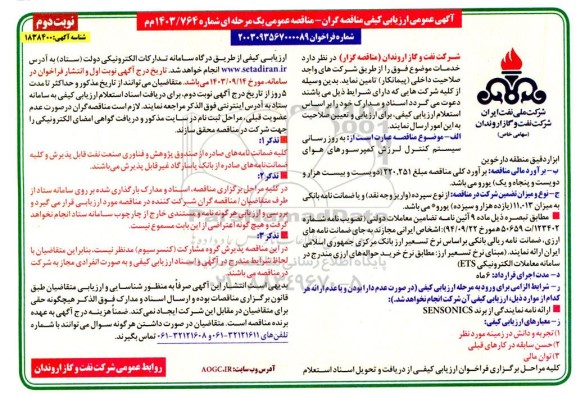 آگهی عمومی ارزیابی کیفی مناقصه گران - مناقصه عمومی یک مرحله ای شماره ۱۴۰۳/۷۶۴م‌م
نوبت دوم
شماره فراخوان ۲۰۰۳۰۹۳۵۶۷۰۰۰۰۸۹
شناسه آگهی: ۱۸۳۸۴۰۰
شرکت ملی نفت ایران
شرکت نفت و گاز اروندان
(سهامی خاص)
شرکت نفت و گاز اروندان (مناقصه گزار) در نظر دارد
خدمات موضوع فوق را از طریق شرکت های واجد
صلاحیت داخلی (پیمانکار) تامین نماید. بدین وسیله
از کلیه شرکت هایی که دارای شرایط ذیل می باشند
دعوت می گردد اسناد و مدارک خود را بر اساس
استعلام ارزیابی کیفی، برای ارزیابی و تعیین صلاحیت
به این امور ارسال نمایند.
الف - موضوع مناقصه عبارت است از: به روز رسانی
سیستم کنترل لرزش کمپرسورهای هوای
ابزار دقیق منطقه دارخوین
ب- برآورد مالی مناقصه: برآورد کلی مناقصه مبلغ (۲۲۰.۲۵۱) (دویست و بیست هزار و
دویست و پنجاه و یک) یورو می باشد.
ج- نوع و میزان تضمین شرکت در مناقصه: از نوع سپرده (واریز وجه نقد) و یا ضمانت نامه بانکی
به میزان ۱۱,۰۱۳ (یازده هزار و سیزده) یورو می باشد.
• مطابق تبصره ذیل ماده ۹ آئین نامه تضمین معاملات دولتی (تصویب نامه شماره
۱۲۳۴۰۲/ت ۵۰۶۵۹ هـ مورخ ۹۴/۰۹/۲۲): اشخاص ایرانی مجازند به جای ضمانت نامه های
ارزی، ضمانت نامه ریالی بانکی بر اساس نرخ تسعیر ارز بانک مرکزی جمهوری اسلامی
ایران ارائه نمایند. (مبنای نرخ تسعیر ارز: مطابق نرخ خرید حواله های ارزی مندرج در
سامانه معاملات الکترونیکی ETS)
د- مدت اجرای قرارداد: ۶ ماه
ر- شرایط الزامی برای ورود به مرحله ارزیابی کیفی (در صورت عدم دارا بودن و یا عدم ارائه هر
کدام از موارد ذیل، ارزیابی کیفی آن شرکت انجام نخواهد شد.):
• ارائه نامه نمایندگی از برند SENSONICS
ز- معیارهای ارزیابی کیفی:
۱) تجربه و دانش در زمینه مورد نظر
۲) حسن سابقه در کارهای قبلی
۳) توان مالی
کلیه مراحل برگزاری فراخوان ارزیابی کیفی از دریافت و تحویل اسناد استعلام
ارزیابی کیفی از طریق درگاه سامانه تدارکات الکترونیکی دولت (ستاد) به آدرس
www.setadiran.ir انجام خواهد شد. تاریخ درج آگهی نوبت اول و انتشار فراخوان در
سامانه، مورخ ۱۴۰۳/۰۹/۱۴ می باشد. متقاضیان می توانند از تاریخ مذکور و حداکثر تا مدت
۵ روز از تاریخ درج آگهی نوبت دوم، برای دریافت اسناد استعلام ارزیابی کیفی به سامانه
ستاد به آدرس اینترنتی فوق الذکر مراجعه نمایند. لازم است مناقصه گران در صورت عدم
عضویت قبلی، مراحل ثبت نام در سایت مذکور و دریافت گواهی امضای الکترونیکی را
جهت شرکت در مناقصه محقق سازند.
تذکر ۱:
کلیه ضمانت نامه های صادره از صندوق پژوهش و فناوری صنعت نفت قابل پذیرش و کلیه
ضمانت نامه های صادره از بانک پاسارگاد غیر قابل پذیرش می باشند.
تذکر ۲:
در کلیه مراحل برگزاری مناقصه، اسناد و مدارک بارگذاری شده بر روی سامانه ستاد از
طرف متقاضیان/ مناقصه گران شرکت کننده در مناقصه مورد ارزیابی قرار می گیرد و
بررسی و ارزیابی هرگونه نامه و مستندی خارج از چارچوب سامانه ستاد انجام نخواهد
گرفت و هیچ گونه اعتراضی از این بابت مسموع نیست.
تذکر ۳:
در این مناقصه پذیرش گروه مشارکت (کنسرسیوم) مدنظر نیست، بنابراین متقاضیان با
لحاظ شرایط مندرج در آگهی و اسناد ارزیابی کیفی و به صورت انفرادی مجاز به شرکت
در مناقصه می باشند.
بدیهی است انتشار این آگهی صرفاً به منظور شناسایی و ارزیابی متقاضیان طبق
قانون برگزاری مناقصات بوده و ارسال اسناد و مدارک فوق الذکر هیچگونه حقی
برای متقاضیان در مقابل این شرکت ایجاد نمی کند. ضمناً هزینه درج آگهی به عهده
برنده مناقصه است. متقاضیان در صورت داشتن هر گونه سوال می توانند با شماره
تلفن های ۳۲۱۲۱۶۱۱-۰۶۱ و ۳۲۱۲۱۶۰۸-۰۶۱ تماس بگیرند.
آدرس وب سایت: AOGC.IR
روابط عمومی شرکت نفت و گاز اروندان